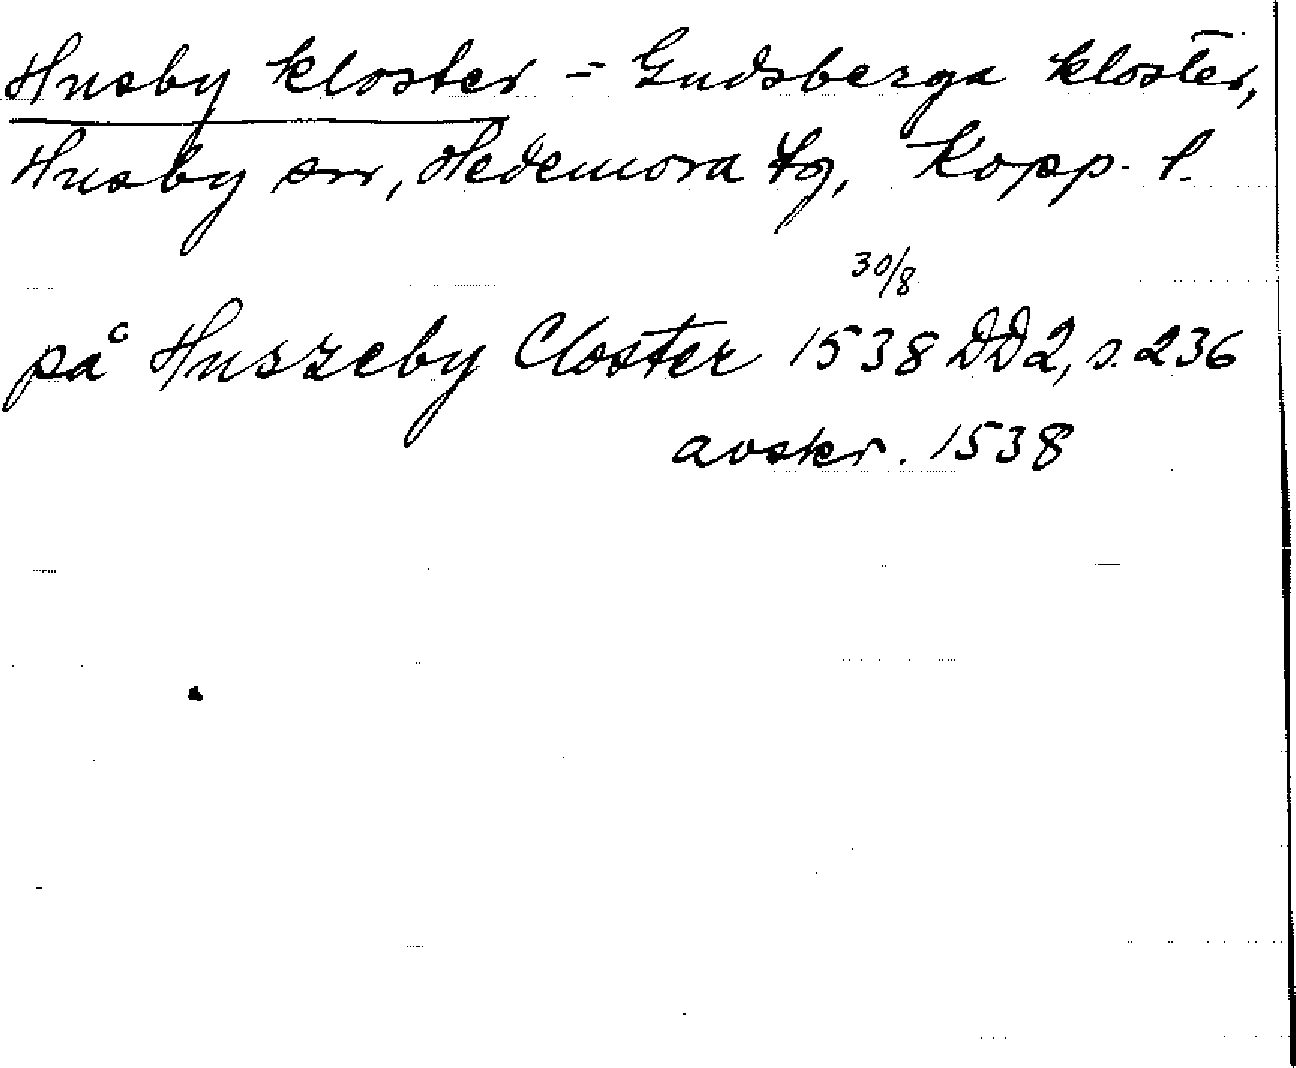 Husby kloster = Gudsberga kloster,
Husby sn, Hedemora tg, Kopp. l.
30/8
på Huszeby Closter 1538 DD2, s. 236
avskr. 1538